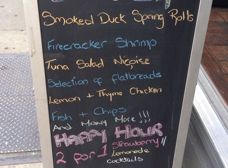 Smoked Duck Spring Rolls
Firecracker Shrimp
Tuna Salad Niçoise
Selection of flatbreads
Lemon + Thyme Chicken
Fish + Chips
And Many More!!!
HAPPY HOUR
2 for 1 Strawberry
Lemonade
cocktails